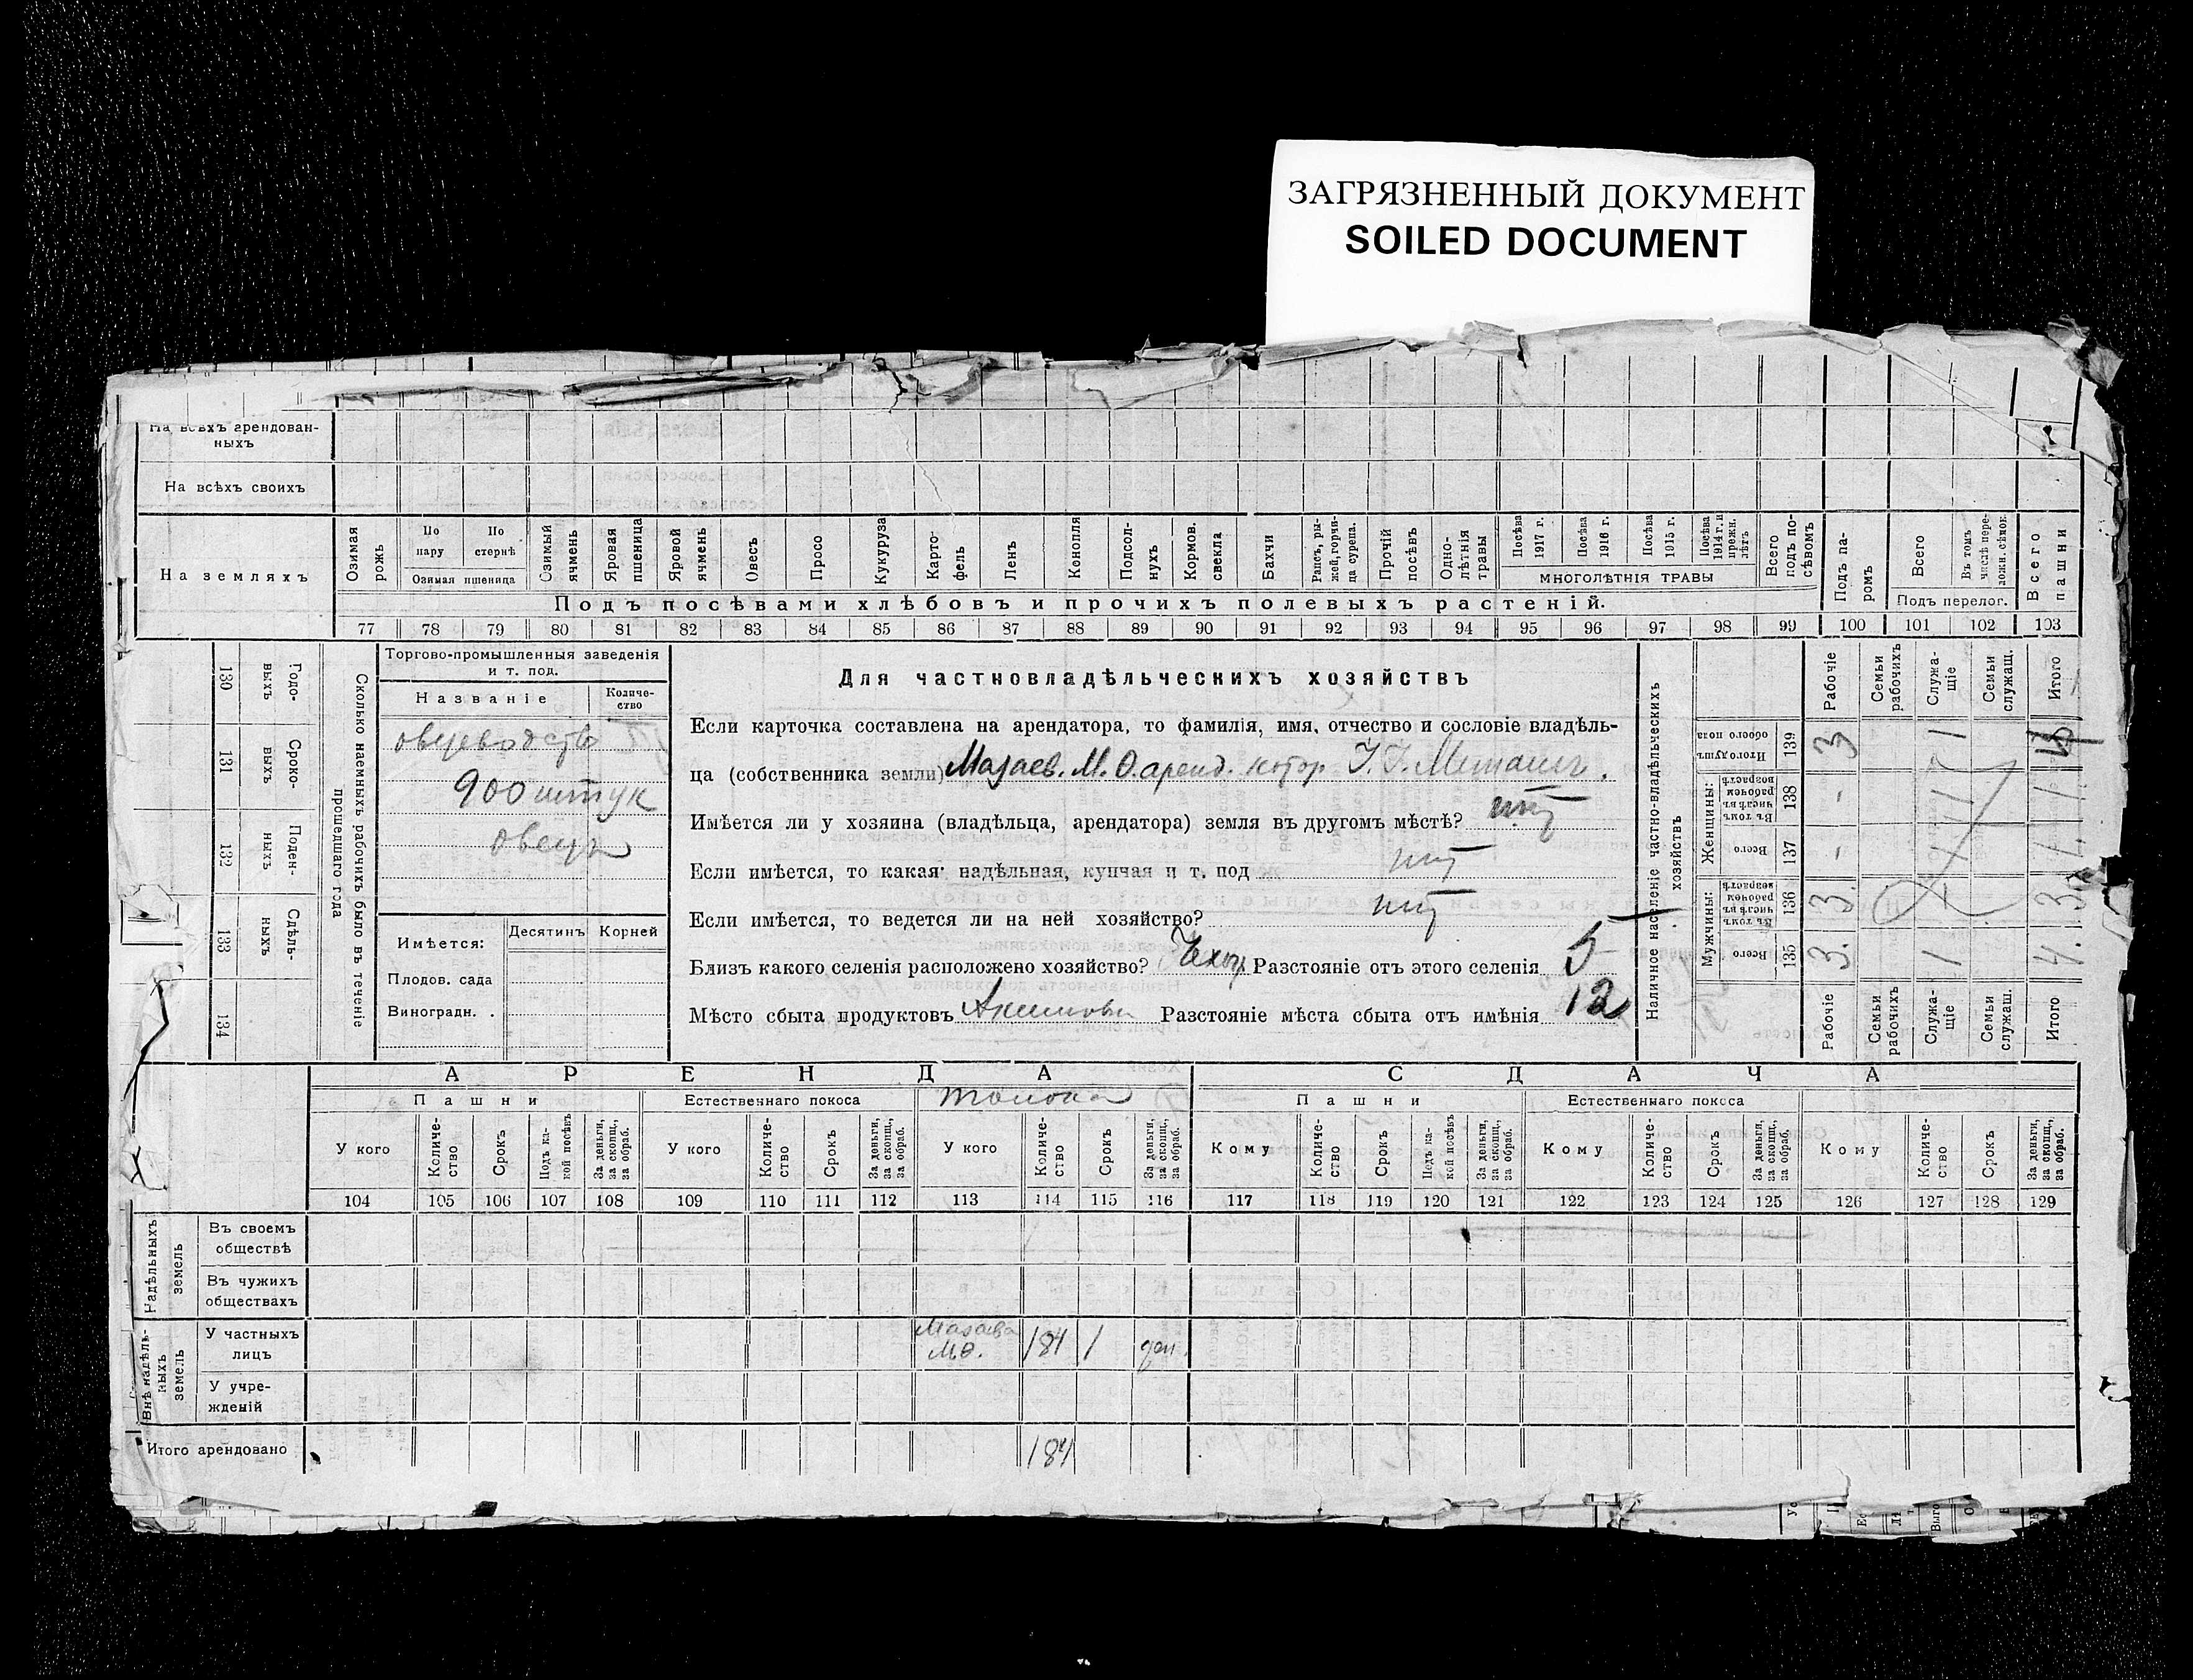 ЗАГРЯЗНЕННЫЙ ДОКУМЕНТ
SOILED DOCUMENT
На всѣхъ арендован-
ныхъ
На всѣхъ своихъ
На земляхъ
Озимая рожь
По пару
По стернѣ
Озимая пшеница
Озимый ячмень
Яровая пшеница
Яровой ячмень
Овесъ
Просо
Кукуруза
Карто-
фель
Ленъ
Конопля
Подсол-
нухъ
Кормов. свекла
Бахчи
Рапсъ, ры-
жей, горчи-
ца сурепа.
Прочій посѣвъ
Одно-
лѣтнія травы
Посѣва 1917 г.
Посѣва 1916 г.
Посѣва 1915 г.
Посѣва 1914 г. и прежн. лѣтъ
МНОГОЛѢТНІЯ ТРАВЫ
Всего подъ по-
сѣвомъ
Подъ па-
ромъ
Всего
Въ томъ числѣ пере-
ложн. сѣнок.
Подъ перелог.
Всего пашни
Подъ посѣвами хлѣбовъ и прочихъ полевыхъ растеній.
77 78 79 80 81 82 83 84 85 86 87 88 89 90 91 92 93 94 95 96 97 98 99 100 101 102 103
130 Годо-
выхъ
131 Сроко-
выхъ
132 Поден-
ныхъ
133 Сдѣль-
ныхъ
134
Сколько наемныхъ рабочихъ было въ теченіе
прошедшаго года
Торгово-промышленныя заведенія
и т. под.
Названіе
Количе-
ство
овцеводство
900 штук
овецъ
Имѣется:
Десятинъ
Корней
Плодов. сада
Виноградн. .
Для частновладѣльческихъ хозяйствъ
Если карточка составлена на арендатора, то фамилія, имя, отчество и сословіе владѣль-
ца (собственника земли) Мазаев. М. Ѳ. аренд. котор
Имѣется ли у хозяина (владѣльца, арендатора) земля въ другомъ мѣстѣ? нѣт
Если имѣется, то какая: надѣльная, купчая и т. под нѣт
Если имѣется, то ведется ли на ней хозяйство? нѣт
Близъ какого селенія расположено хозяйство? Разстояніе отъ этого селенія 5
Мѣсто сбыта продуктовъ Акимовка Разстояніе мѣста сбыта отъ имѣнія 12
Наличное населеніе частно-владѣльческихъ
хозяйствъ
Рабочіе
Семьи рабочихъ
Служа-
щіе
Семьи служащ.
Итого
Итого душъ обоего пола
139
3
1
Женщины:
Въ томъ числѣ въ рабочем возрастѣ
138
-
Всего
137
-
Мужчины:
Въ томъ числѣ въ рабочем возрастѣ
136
3.
3.
Всего
135
3.
1
4.
Рабочіе
Семьи рабочихъ
Служа-
щіе
Семьи служащ.
Итого
АРЕНДА
СДАЧА
Пашни
Естественнаго покоса
толока
Пашни
Естественнаго покоса
У кого
Количе-
ство
Срокъ
Подъ ка-
кой посѣвъ
За деньги, за скопщ., за обраб.
У кого
Количе-
ство
Срокъ
За деньги, за скопщ., за обраб.
У кого
Количе-
ство
Срокъ
За деньги, за скопщ., за обраб.
Кому
Количе-
ство
Срокъ
Подъ ка-
кой посѣвъ
За деньги, за скопщ., за обраб.
Кому
Количе-
ство
Срокъ
За деньги, за скопщ., за обраб.
Кому
Количе-
ство
Срокъ
За деньги, за скопщ., за обраб.
104 105 106 107 108 109 110 111 112 113 114 115 116 117 118 119 120 121 122 123 124 125 126 127 128 129
Надѣльныхъ земель
Въ своемъ
обществѣ
Въ чужихъ
обществахъ
Внѣ надѣль-
ныхъ земель
У частныхъ
лицъ
Мазаева
М.Ѳ.
184
1
ден.
У учре-
жденій
Итого арендовано
184